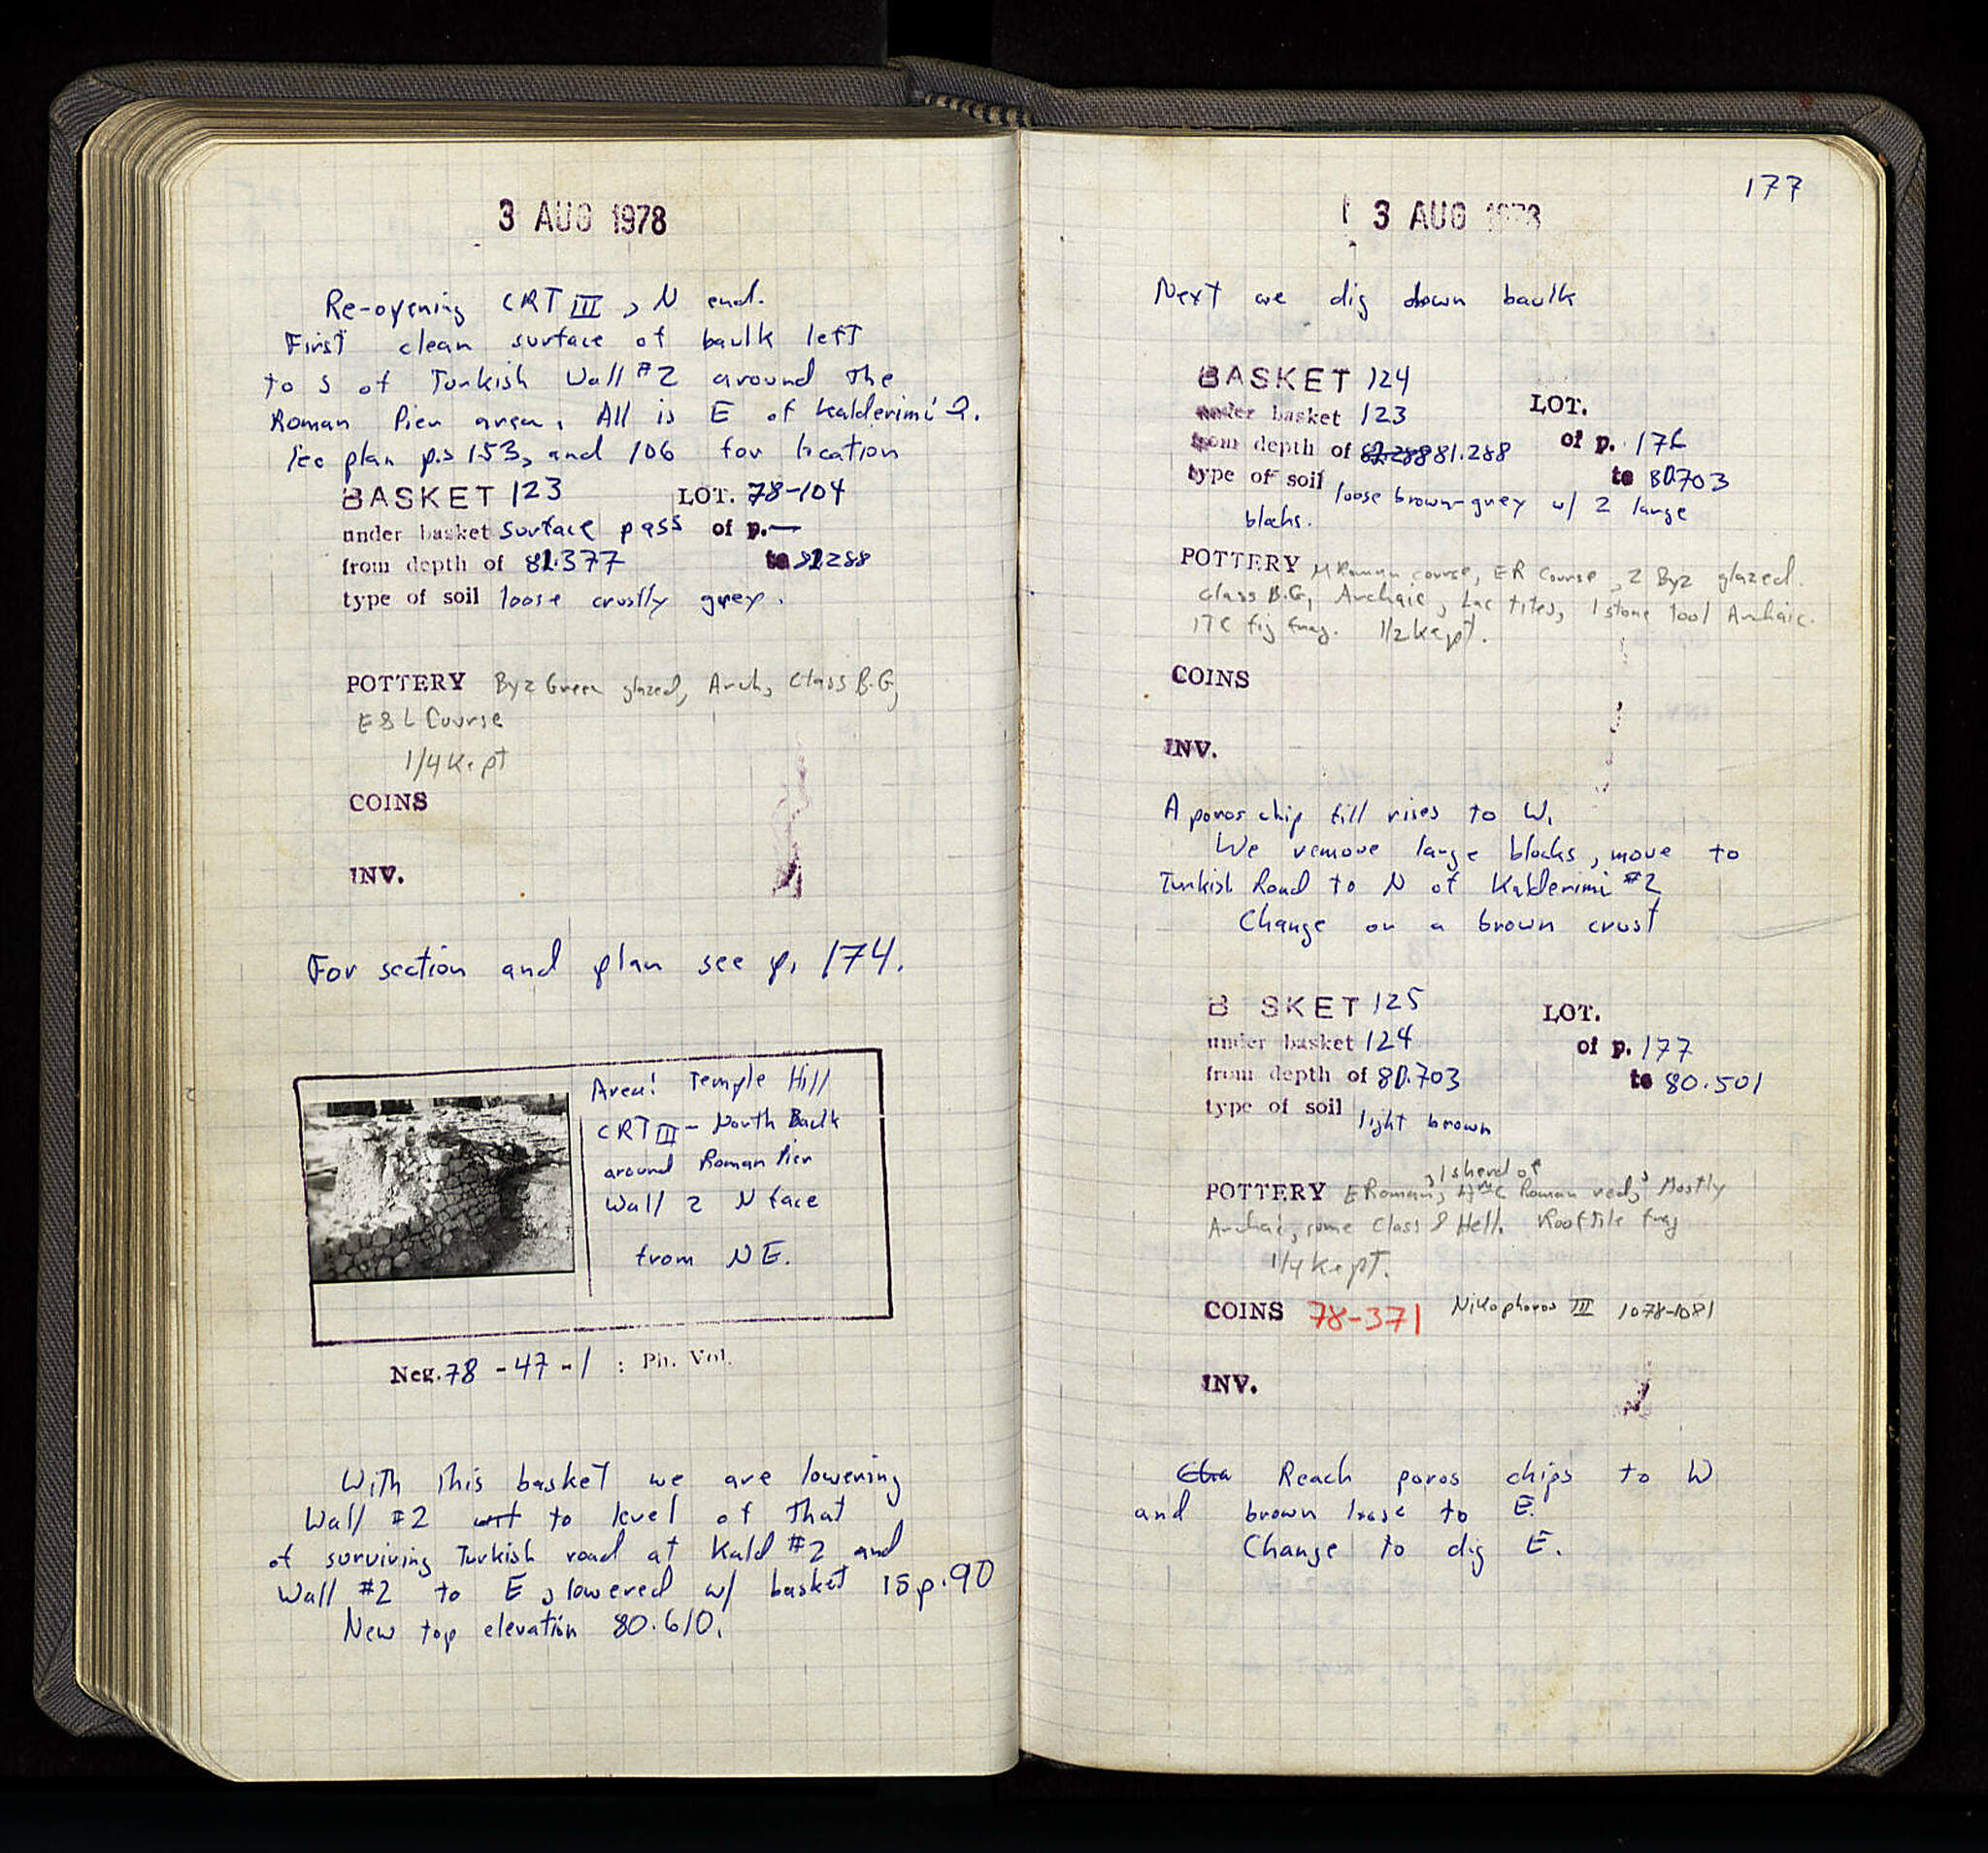 3 AUG 1978
Re-opening CRT III, N end.
First clean surface of baulk left
to S of Turkish Wall #2 around the
Roman Pier area. All is E of Kalderimi 2.
See plan p.s 153, and 106 for location
BASKET 123 LOT. 78-104
under basket surface pass of p. —
from depth of 81.377 to 81288
type of soil loose crustly grey.
POTTERY Byz Green glazed, Arch, Class B.G,
E & L Course
1/4 Kept
COINS
INV.
For section and plan see p. 174.
Area: Temple Hill
CRT III - North Baulk
around Roman Pier
Wall 2 N face
from NE.
Neg. 78-47-1 : Ph. Vol.
With this basket we are lowering
Wall #2 to level of that
of surviving Turkish road at Kald #2 and
Wall #2 to E, lowered w/ basket 15 p.90
New top elevation 80.610.
177
3 AUG 1978
Next we dig down baulk
BASKET 124
under basket 123 LOT.
from depth of 81.288 of p. 176
type of soil to 80703
loose brown-grey w/ 2 large
blocks.
POTTERY M Roman course, ER Course, 2 Byz glazed.
Class B.G, Archaic, Lac tites, 1 stone tool Archaic.
1TC fig frag. 1/2 Kept.
COINS
INV.
A poros chip fill rises to W.
We remove large blocks, move to
Turkish Road to N of Kalderimi #2
Change on a brown crust
B SKET 125 LOT.
under basket 124 of p. 177
from depth of 80.703 to 80.501
type of soil light brown
POTTERY E Roman, 1 sherd of Roman red, Mostly
Archaic, some Class & Hell. Rooftile frag
1/4 Kept.
COINS 78-371 Nikophoros III 1078-1081
INV.
Reach poros chips to W
and brown loose to E.
Change to dig E.